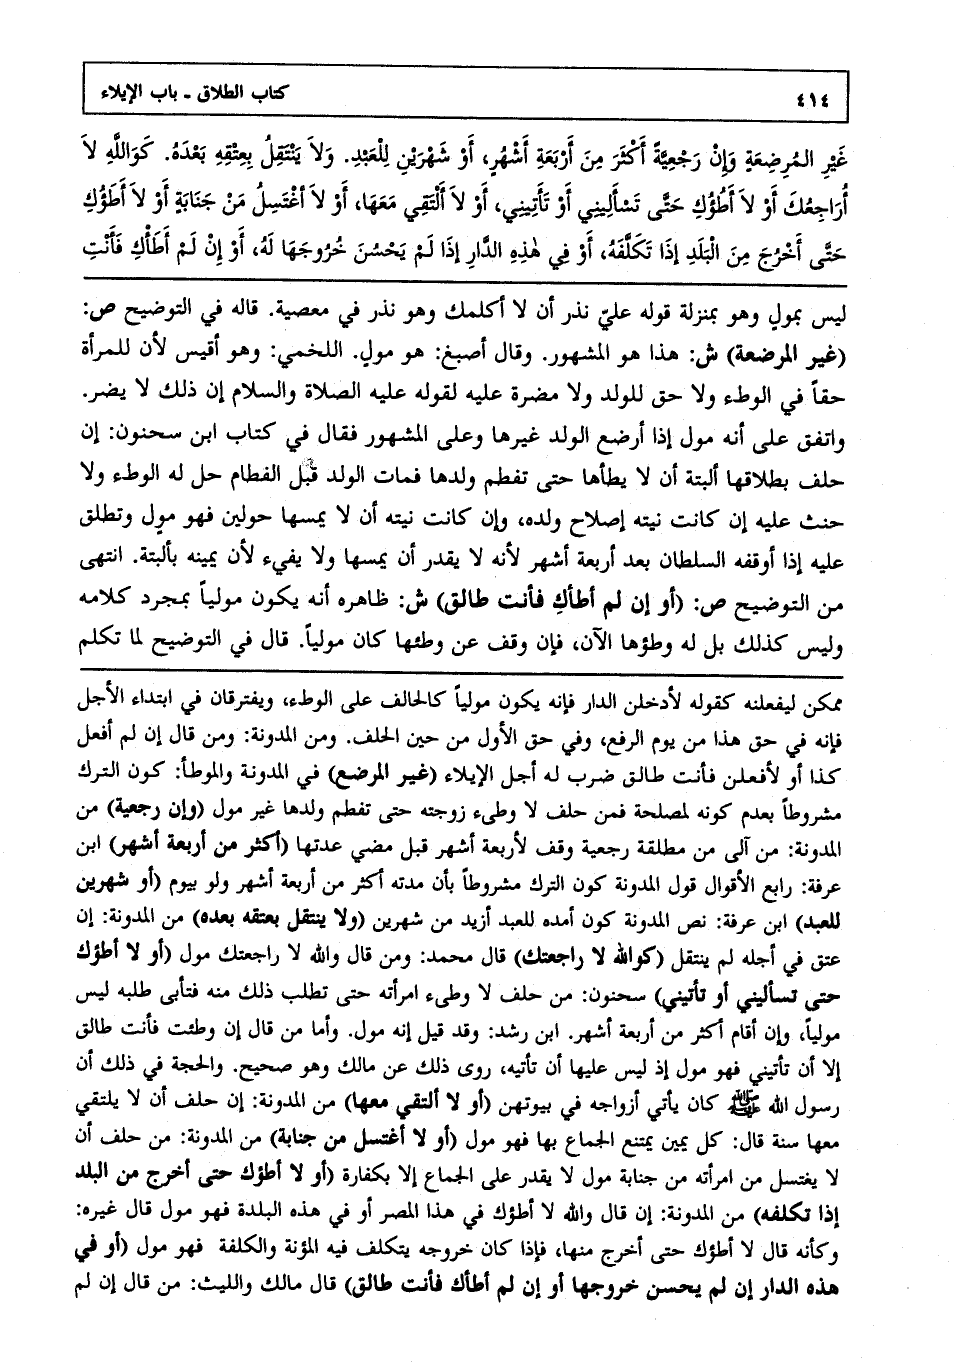 ٤١٤
كتاب الطلاق ـ باب الإيلاء
غَيْرِ المُرضِعَةِ وَإِنْ رَجْعِيَّةً أَكْثَرَ مِنَ أَرْبَعَةِ أَشْهُرٍ، أَوْ شَهْرَيْنِ لِلْعَبْدِ. وَلاَ يَنْتَقِلُ بِعِتْقِهِ بَعْدَهُ. كَوَاللَّهِ لاَ
أُرَاجِعُكَ أَوْ لاَ أَطُؤُكِ حَتَّى تَسْأَلِينِي أَوْ تَأْتِينِي، أَوْ لاَ أَلْتَقِي مَعَهَا، أَوْ لاَ أَغْتَسِلُ مَنْ جَنَابَةٍ أَوْ لاَ أَطَؤُكِ
حَتَّى أَخْرُجَ مِنَ الْبَلَدِ إذَا تَكَلَّفَهُ، أَوْ فِي هٰذِهِ الدَّارِ إذَا لَمْ يَحْسُنَ خُرُوجَهَا لَهُ، أَوْ إِنْ لَمْ أَطَأْكِ فَأَنْتِ
ليس بمولٍ وهو بمنزلة قوله عليّ نذر أن لا أكلمك وهو نذر في معصية. قاله في التوضيح ص:
(غير المرضعة) ش: هذا هو المشهور. وقال أصبغ: هو مولٍ. اللخمي: وهو أقيس لأن للمرأة
حقاً في الوطء ولا حق للولد ولا مضرة عليه لقوله عليه الصلاة والسلام إن ذلك لا يضر.
واتفق على أنه مول إذا أرضع الولد غيرها وعلى المشهور فقال في كتاب ابن سحنون: إن
حلف بطلاقها ألبتة أن لا يطأها حتى تفطم ولدها فمات الولد قبل الفطام حل له الوطء ولا
حنث عليه إن كانت نيته إصلاح ولده، وإن كانت نيته أن لا يمسها حولين فهو مولٍ وتطلق
عليه إذا أوقفه السلطان بعد أربعة أشهر لأنه لا يقدر أن يمسها ولا يفيء لأن يمينه بألبتة. انتهى
من التوضيح ص: (أو إن لم أطأكِ فأنت طالق) ش: ظاهره أنه يكون مولياً بمجرد كلامه
وليس كذلك بل له وطؤها الآن، فإن وقف عن وطئها كان مولياً. قال في التوضيح لما تكلم
ممكن ليفعلنه كقوله لأدخلن الدار فإنه يكون مولياً كالحالف على الوطء، ويفترقان في ابتداء الأجل
فإنه في حق هذا من يوم الرفع، وفي حق الأول من حين الحلف. ومن المدونة: ومن قال إن لم أفعل
كذا أو لأفعلن فأنت طالق ضرب له أجل الإيلاء (غير المرضع) في المدونة والموطأ: كون الترك
مشروطاً بعدم كونه لمصلحة فمن حلف لا وطىء زوجته حتى تفطم ولدها غير مول (وإن رجعية) من
المدونة: من آلى من مطلقة رجعية وقف لأربعة أشهر قبل مضي عدتها (أكثر من أربعة أشهر) ابن
عرفة: رابع الأقوال قول المدونة كون الترك مشروطاً بأن مدته أكثر من أربعة أشهر ولو بيوم (أو شهرين
للعبد) ابن عرفة: نص المدونة كون أمده للعبد أزيد من شهرين (ولا ينتقل بعتقه بعده) من المدونة: إن
عتق في أجله لم ينتقل (كوالله لا راجعتك) قال محمد: ومن قال والله لا راجعتك مول (أو لا أطؤك
حتى تسأليني أو تأتيني) سحنون: من حلف لا وطىء امرأته حتى تطلب ذلك منه فتأبى طلبه ليس
مولياً، وإن أقام أكثر من أربعة أشهر. ابن رشد: وقد قيل إنه مول. وأما من قال إن وطئت فأنت طالق
إلا أن تأتيني فهو مول إذ ليس عليها أن تأتيه، روى ذلك عن مالك وهو صحيح. والحجة في ذلك أن
رسول الله ﷺ كان يأتي أزواجه في بيوتهن (أو لا ألتقي معها) من المدونة: إن حلف أن لا يلتقي
معها سنة قال: كل يمين يمتنع الجماع بها فهو مول (أو لا أغتسل من جنابة) من المدونة: من حلف أن
لا يغتسل من امرأته من جنابة مول لا يقدر على الجماع إلا بكفارة (أو لا أطؤك حتى أخرج من البلد
إذا تكلفه) من المدونة: إن قال والله لا أطؤك في هذا المصر أو في هذه البلدة فهو مول قال غيره:
وكأنه قال لا أطؤك حتى أخرج منها، فإذا كان خروجه يتكلف فيه المؤنة والكلفة فهو مول (أو في
هذه الدار إن لم يحسن خروجها أو إن لم أطأك فأنت طالق) قال مالك والليث: من قال إن لم